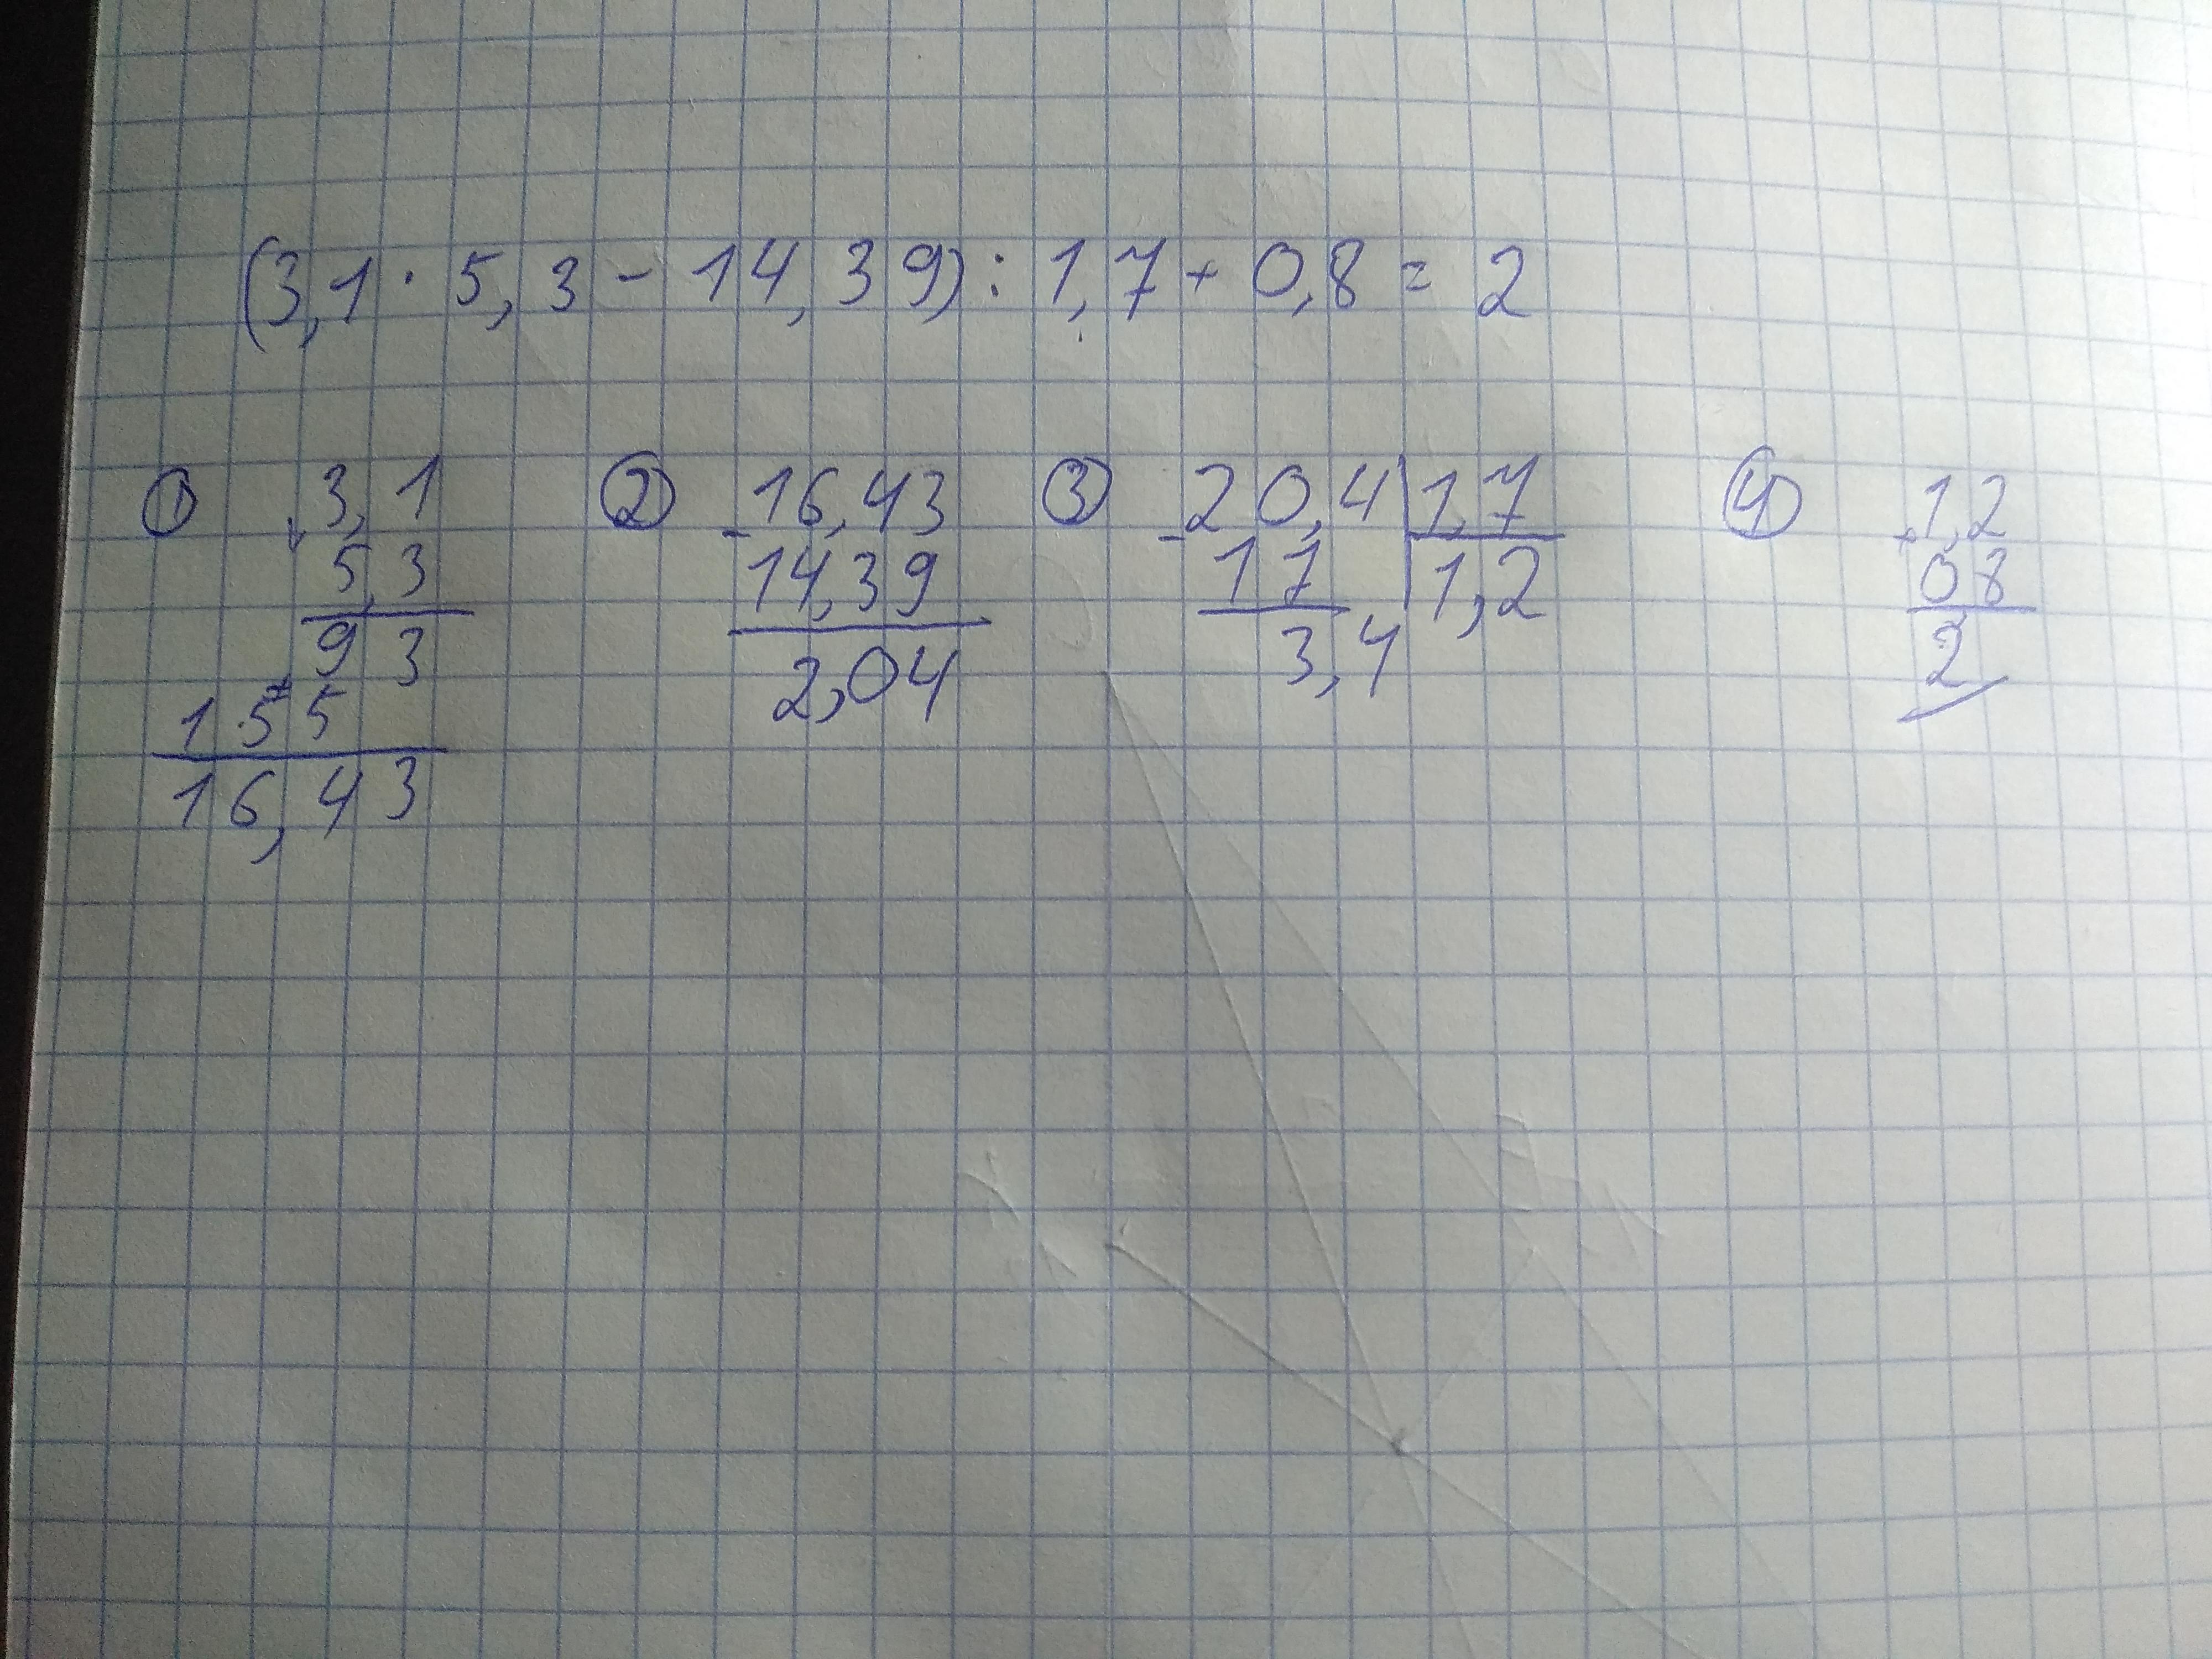 (3,1 · 5,3 - 14,39) : 1,7 + 0,8 = 2
① 3,1
5,3
9 3
+
1 5 5
16,43
② - 16,43
14,39
2,04
③ - 20,4 | 1,7
17 | 1,2
3,4
④ + 1,2
0 8
2